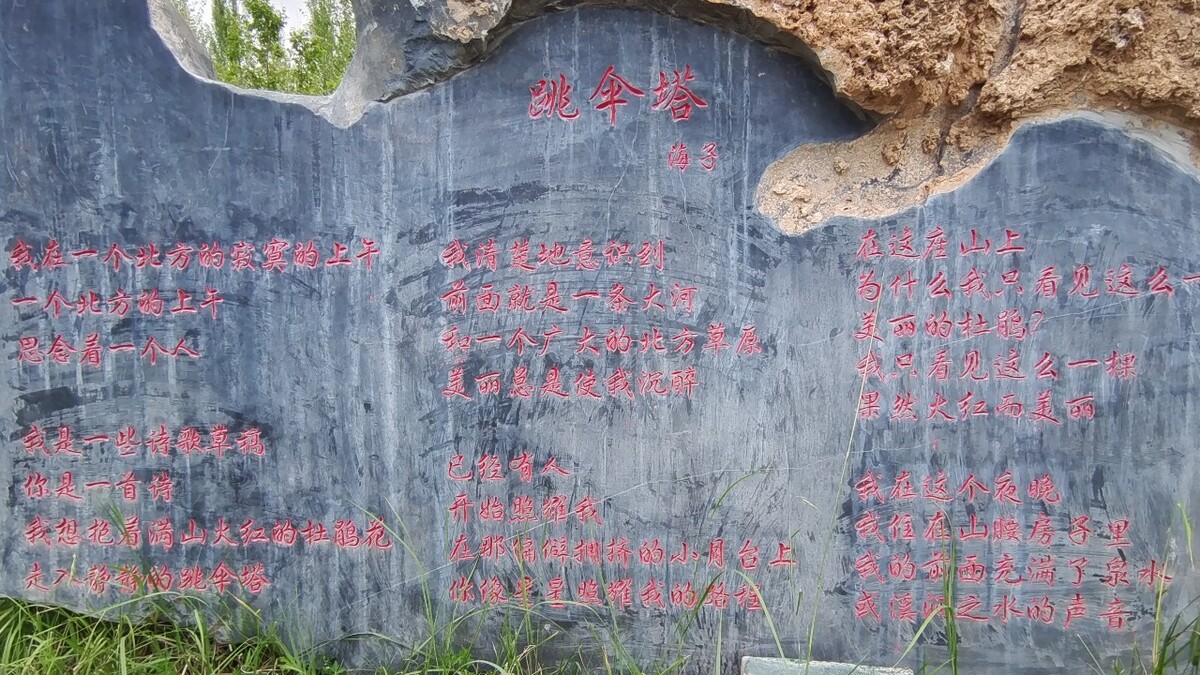 跳伞塔
海子
我在一个北方的寂寞的上午
一个北方的上午
思念着一个人
我是一些诗歌草稿
你是一首诗
我想抱着满山火红的杜鹃花
走入静静的跳伞塔
我清楚地意识到
前面就是一条大河
和一个广大的北方草原
美丽总是使我沉醉
已经有人
开始照耀我
在那偏僻拥挤的小月台上
你像星星照耀我的路程
在这座山上
为什么我只看见这么一
美丽的杜鹃?
我只看见这么一棵
果然火红而美丽
我在这个夜晚
我住在山腰房子里
我的前面充满了泉水
或溪涧之水的声音